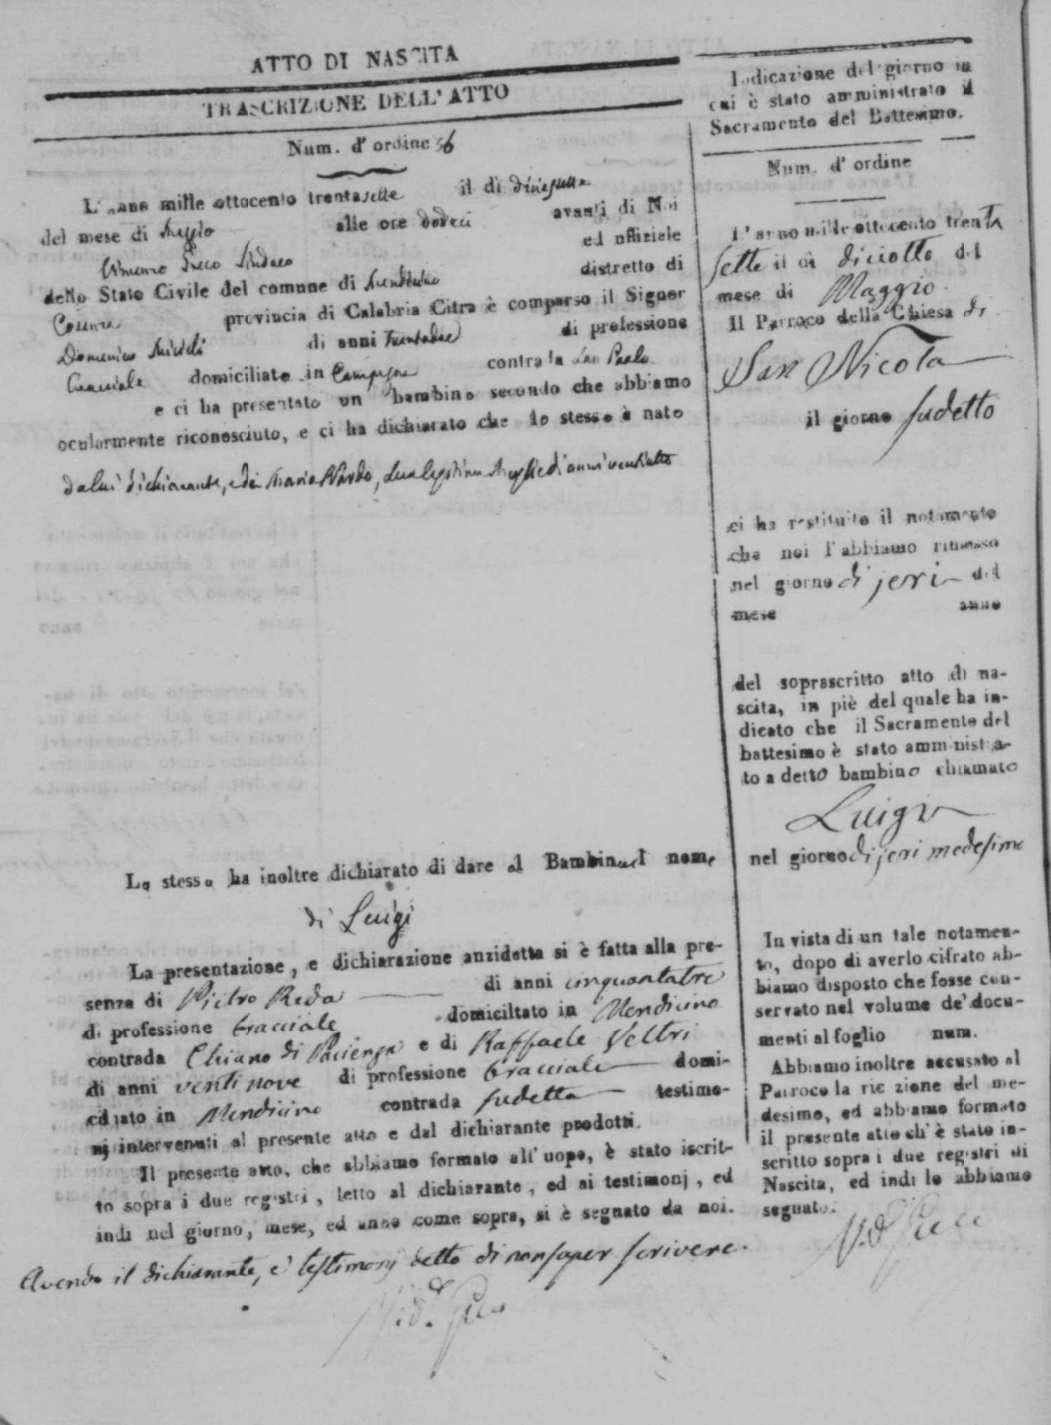 ATTO DI NASCITA
TRASCRIZIONE DELL'ATTO
Num. d' ordine 56
L'anno mille ottocento trentasette il dì diciasette
del mese di Maggio alle ore dodeci avanti di Noi
Greco Sindaco ed uffiziale
dello Stato Civile del comune di Mendicino distretto di
Cosenza provincia di Calabria Citra è comparso il Signor
Domenico di anni trentadue di professione
Bracciale domiciliato in Campagna contrada San Paolo
e ci ha presentato un bambino secondo che abbiamo
ocularmente riconosciuto, e ci ha dichiarato che lo stesso è nato
da lui dichiarante, e da Maria Nardo, sua legitima moglie di anni ventiotto
Lo stesso ha inoltre dichiarato di dare al Bambino il nome
di Luigi
La presentazione, e dichiarazione anzidetta si è fatta alla pre-
senza di Pietro Reda di anni cinquantatre
di professione bracciale domiciltato in Mendicino
contrada Chiano di Pacienza e di Raffaele Veltri
di anni ventinove di professione bracciale domi-
ciliato in Mendicino contrada sudetta testimo-
nj intervenuti al presente atto e dal dichiarante prodotti.
Il presente atto, che abbiamo formato all'uopo, è stato iscrit-
to sopra i due registri, letto al dichiarante, ed ai testimonj, ed
indi nel giorno, mese, ed anno come sopra, si è segnato da noi.
Avendo il dichiarante, e testimonj detto di non saper scrivere.
Indicazione del giorno in
cui è stato amministrato il
Sacramento del Battesimo.
Num. d' ordine
L'anno mille ottocento trenta
sette il dì diciotto del
mese di Maggio
Il Parroco della Chiesa di
San Nicola
il giorno sudetto
ci ha restituito il notamento
che noi l'abbiamo rimesso
nel giorno di jeri del
mese anno
del soprascritto atto di na-
scita, in piè del quale ha in-
dicato che il Sacramento del
battesimo è stato amministra-
to a detto bambino chiamato
Luigi
nel giorno di jeri medesimo
In vista di un tale notamen-
to, dopo di averlo cifrato ab-
biamo disposto che fosse con-
servato nel volume de' docu-
menti al foglio num.
Abbiamo inoltre accusato al
Parroco la ricezione del me-
desimo, ed abbiamo formato
il presente atto ch'è stato in-
scritto sopra i due registri di
Nascita, ed indi lo abbiamo
segnato.